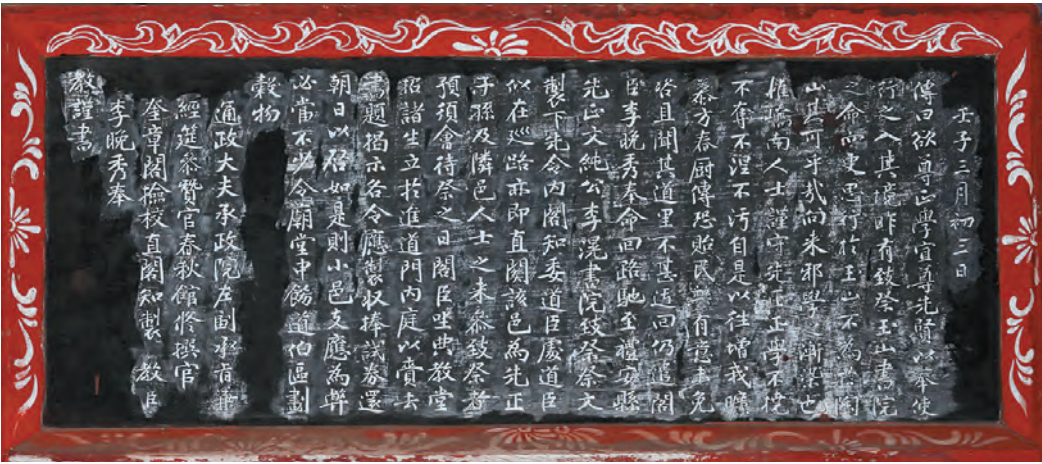 壬子三月初三日
傳曰欲尊正學宜尊先賢以奉使
行之入其境昨有致祭玉山書院
之命而更思行於玉山不爲於陶
山其可乎哉向來邪學之漸染也
惟嶠南人士謹守先正正學不撓
不奪不涅不汚自是以往增我曠
慕方春厨傳恐貽民弊有意未免
咨且聞其道里不甚迂回仍遣閣
臣李晩秀奉命回路馳至禮安縣
先正文純公李滉書院致祭祭文
製下先令內閣知委道臣處道臣
似在巡路亦即直關該邑為先正
子孫及隣邑人士之來參致祭者
預須會待祭之日閣臣坐典教堂
招諸生立於進道門內庭以賫去
書題揭示各令應製收捧試券還
朝日以啓如是則小邑支應為弊
必當不少令廟堂申飭道伯區劃
穀物
通政大夫承政院左副承旨兼
經筵參贊官春秋館修撰官
奎章閣檢校直閣知製 教臣
李晩秀奉
教謹書